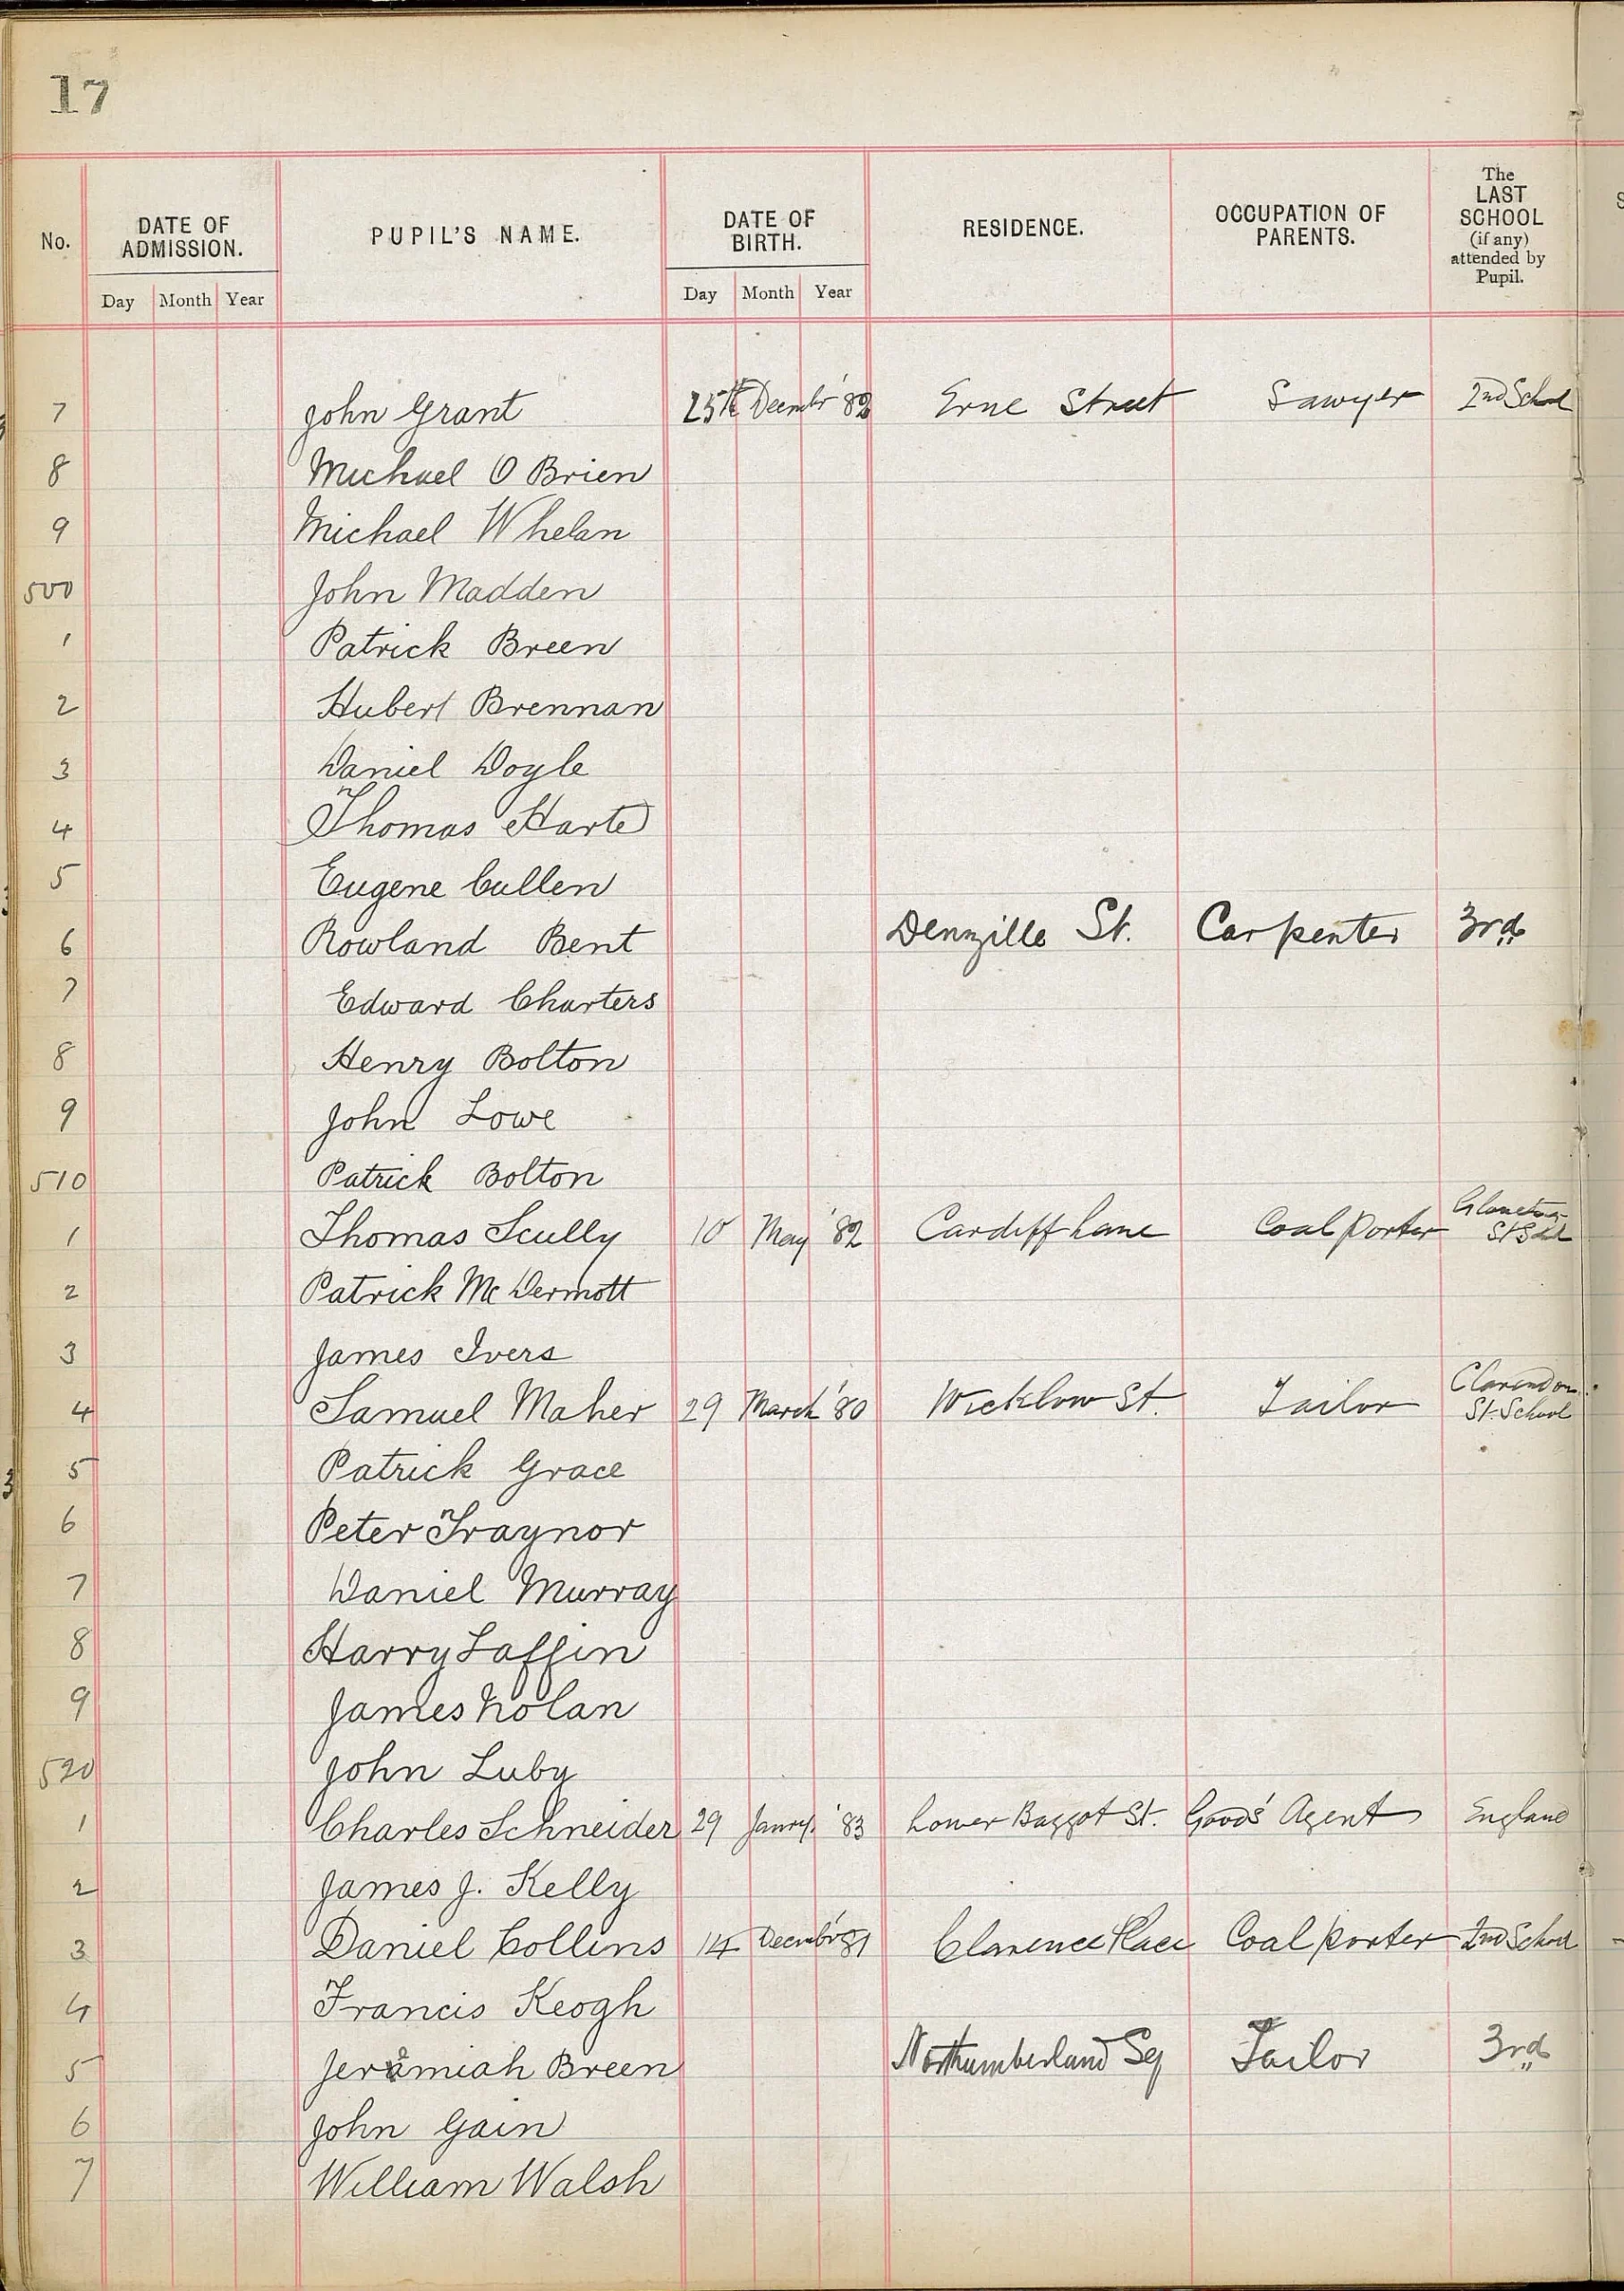 17
No. DATE OF ADMISSION. PUPIL'S NAME. DATE OF BIRTH. RESIDENCE. OCCUPATION OF PARENTS. The LAST SCHOOL (if any) attended by Pupil.
Day Month Year Day Month Year
7 John Grant 25th Decembr '82 Erne Street Sawyer 2nd School
8 Michael O Brien
9 Michael Whelan
500 John Madden
1 Patrick Breen
2 Hubert Brennan
3 Daniel Doyle
4 Thomas Harte
5 Eugene Cullen
6 Rowland Bent Denzille St. Carpenter 3rd
7 Edward Charters
8 Henry Bolton
9 John Lowe
510 Patrick Bolton
1 Thomas Scully 10 May '82 Cardiff Lane Coal Porter
2 Patrick Mc Dermott
3 James Ivers
4 Samuel Maher 29 March '80 Wicklow St. Tailor Clarendon St. School
5 Patrick Grace
6 Peter Traynor
7 Daniel Murray
8 Harry Laffin
9 James Nolan
520 John Luby
1 Charles Schneider 29 Janry. '83 Lower Baggot St. Goods' Agent England
2 James J. Kelly
3 Daniel Collins 14 Decembr '81 Clarence Place Coal porter 2nd School
4 Francis Keogh
5 Jeremiah Breen Northumberland Sq Tailor 3rd
6 John Gain
7 William Walsh